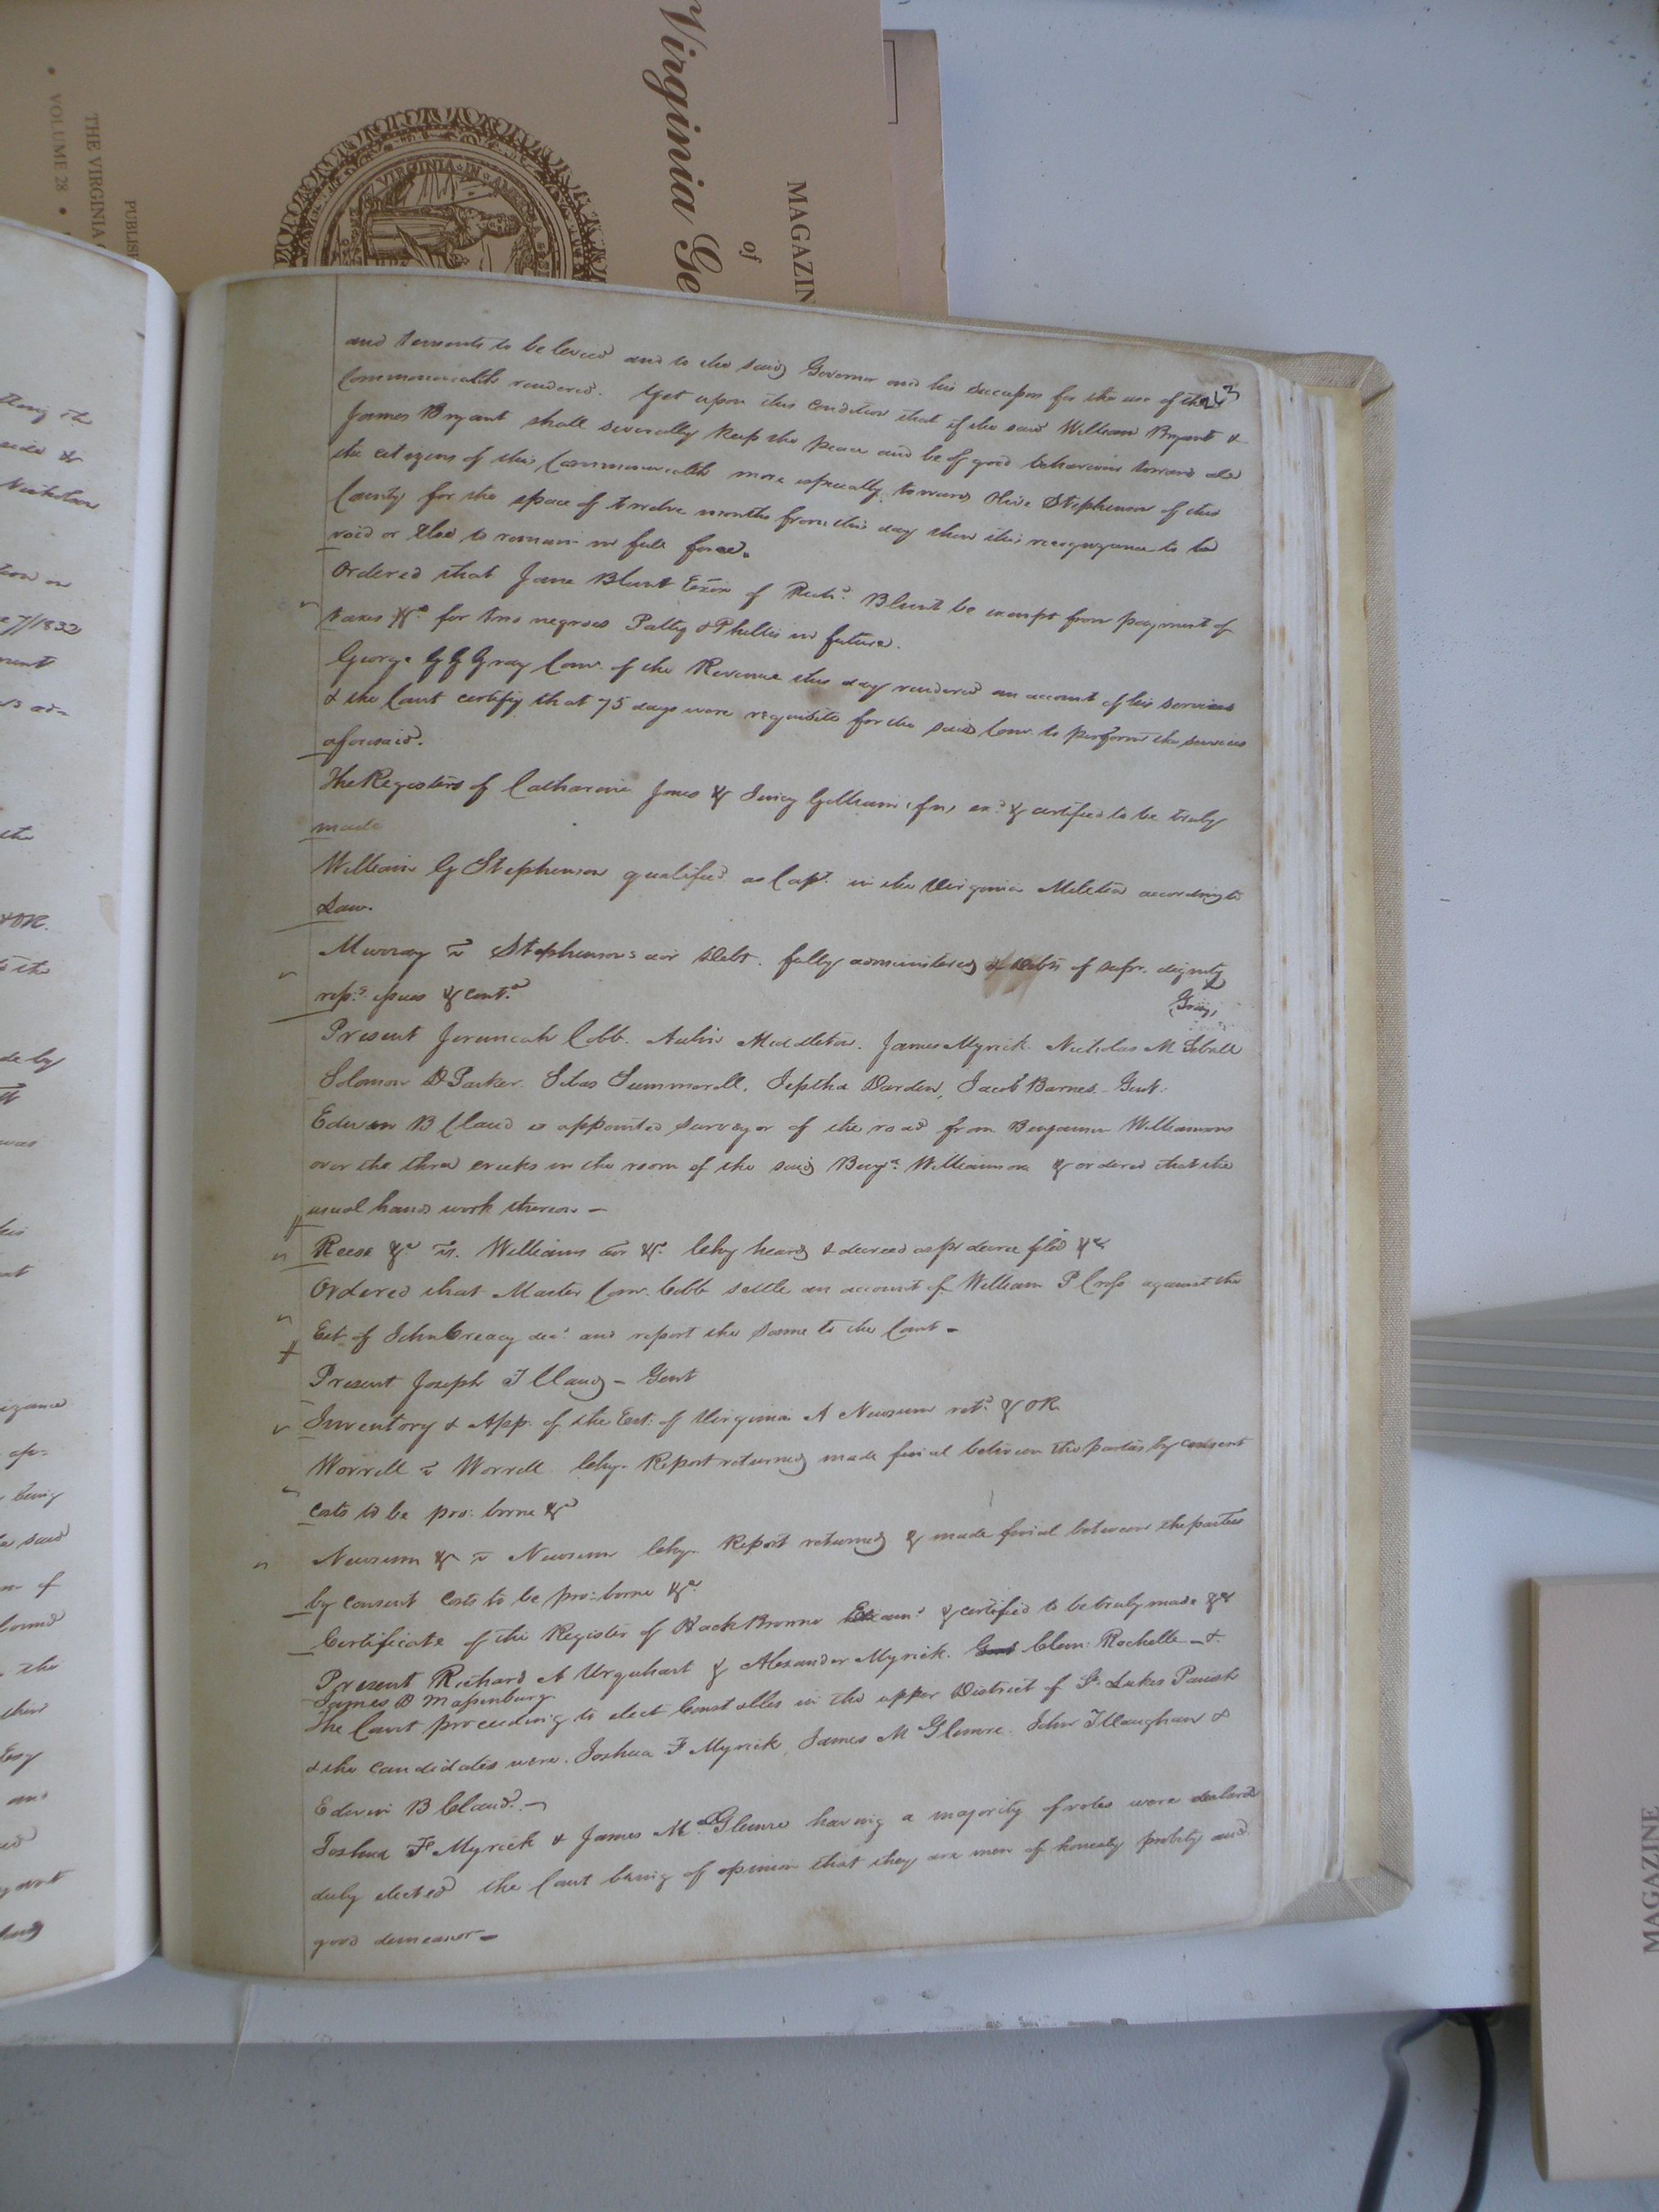 Virginia Ge
of
MAGAZIN
PUBLISH
THE VIRGINIA
• VOLUME 28 •
VIRGINIA · IN ·
MAGAZINE
and tenements to be levied and to the said Governor and his successors for the use of the
Commonwealth rendered. Yet upon this condition that if the said William Bryant &
James Bryant shall severally keep the peace and be of good behaviour toward all
the citizens of this Commonwealth more especially towards Olive Stephenson of this
County for the space of twelve months from this day then this recognizance to be
void or else to remain in full force.
Ordered that Jane Blunt Exōx of Richd. Blunt be exempt from payment of
taxes &c. for two negroes Patty & Phillis in future.
George Gray Com. of the Revenue this day rendered an account of his services
& the Court certify that 75 days were requisite for the said Com. to perform the services
aforesaid.
The Registers of Catharine Jones & Juicy Gilliam (fn) exd. & certified to be truly
made
William G Stephenson qualified as Capt. in the Virginia Militia according to
Law.
Murray vs Stephensons Debt. fully administered & debts of supr. dignity
repns. issues & contd.
Gray,
Present Jeremiah Cobb. Aubin Middleton. James Myrick. Nicholas M Sebrell
Solomon D Parker. Silas Summerell, Jeptha Darden, Jacob Barnes - Gent:
Edwin B Claud is appointed surveyor of the road from Benjamin Williamsons
over the three creeks in the room of the said Benjn. Williamson & ordered that the
usual hands work thereon -
Reese &c vs. Williams &c. Chy heard & decreed as pr decree filed &c
Ordered that Master Com. Cobb settle an account of William P Cross against the
Est. of John Creacy decd. and report the same to the Court -
Present Joseph T Claud - Gent
Inventory & App. of the Est. of Virginia A Newsum retd. & OR.
Worrell vs Worrell Chy. Report returned made final between the parties by consent
costs to be pro: borne &c
Newsum & vs Newsum Chy. Report returned & made final between the parties
by consent costs to be pro: borne &c.
Certificate of the Register of Hack Browne Examd. & certified to be truly made &c
Present Richard A Urquhart & Alexander Myrick. Clem: Rochelle - &
James D Massenburg.
The Court proceeding to elect Constables in the upper District of St. Lukes Parish
& the candidates were. Joshua F Myrick, James M Glemre. John T Vaughan &
Edwin B Claud. -
Joshua F Myrick & James M Glemre having a majority of votes were declared
duly elected the Court being of opinion that they are men of honesty probity and
good demeanor -